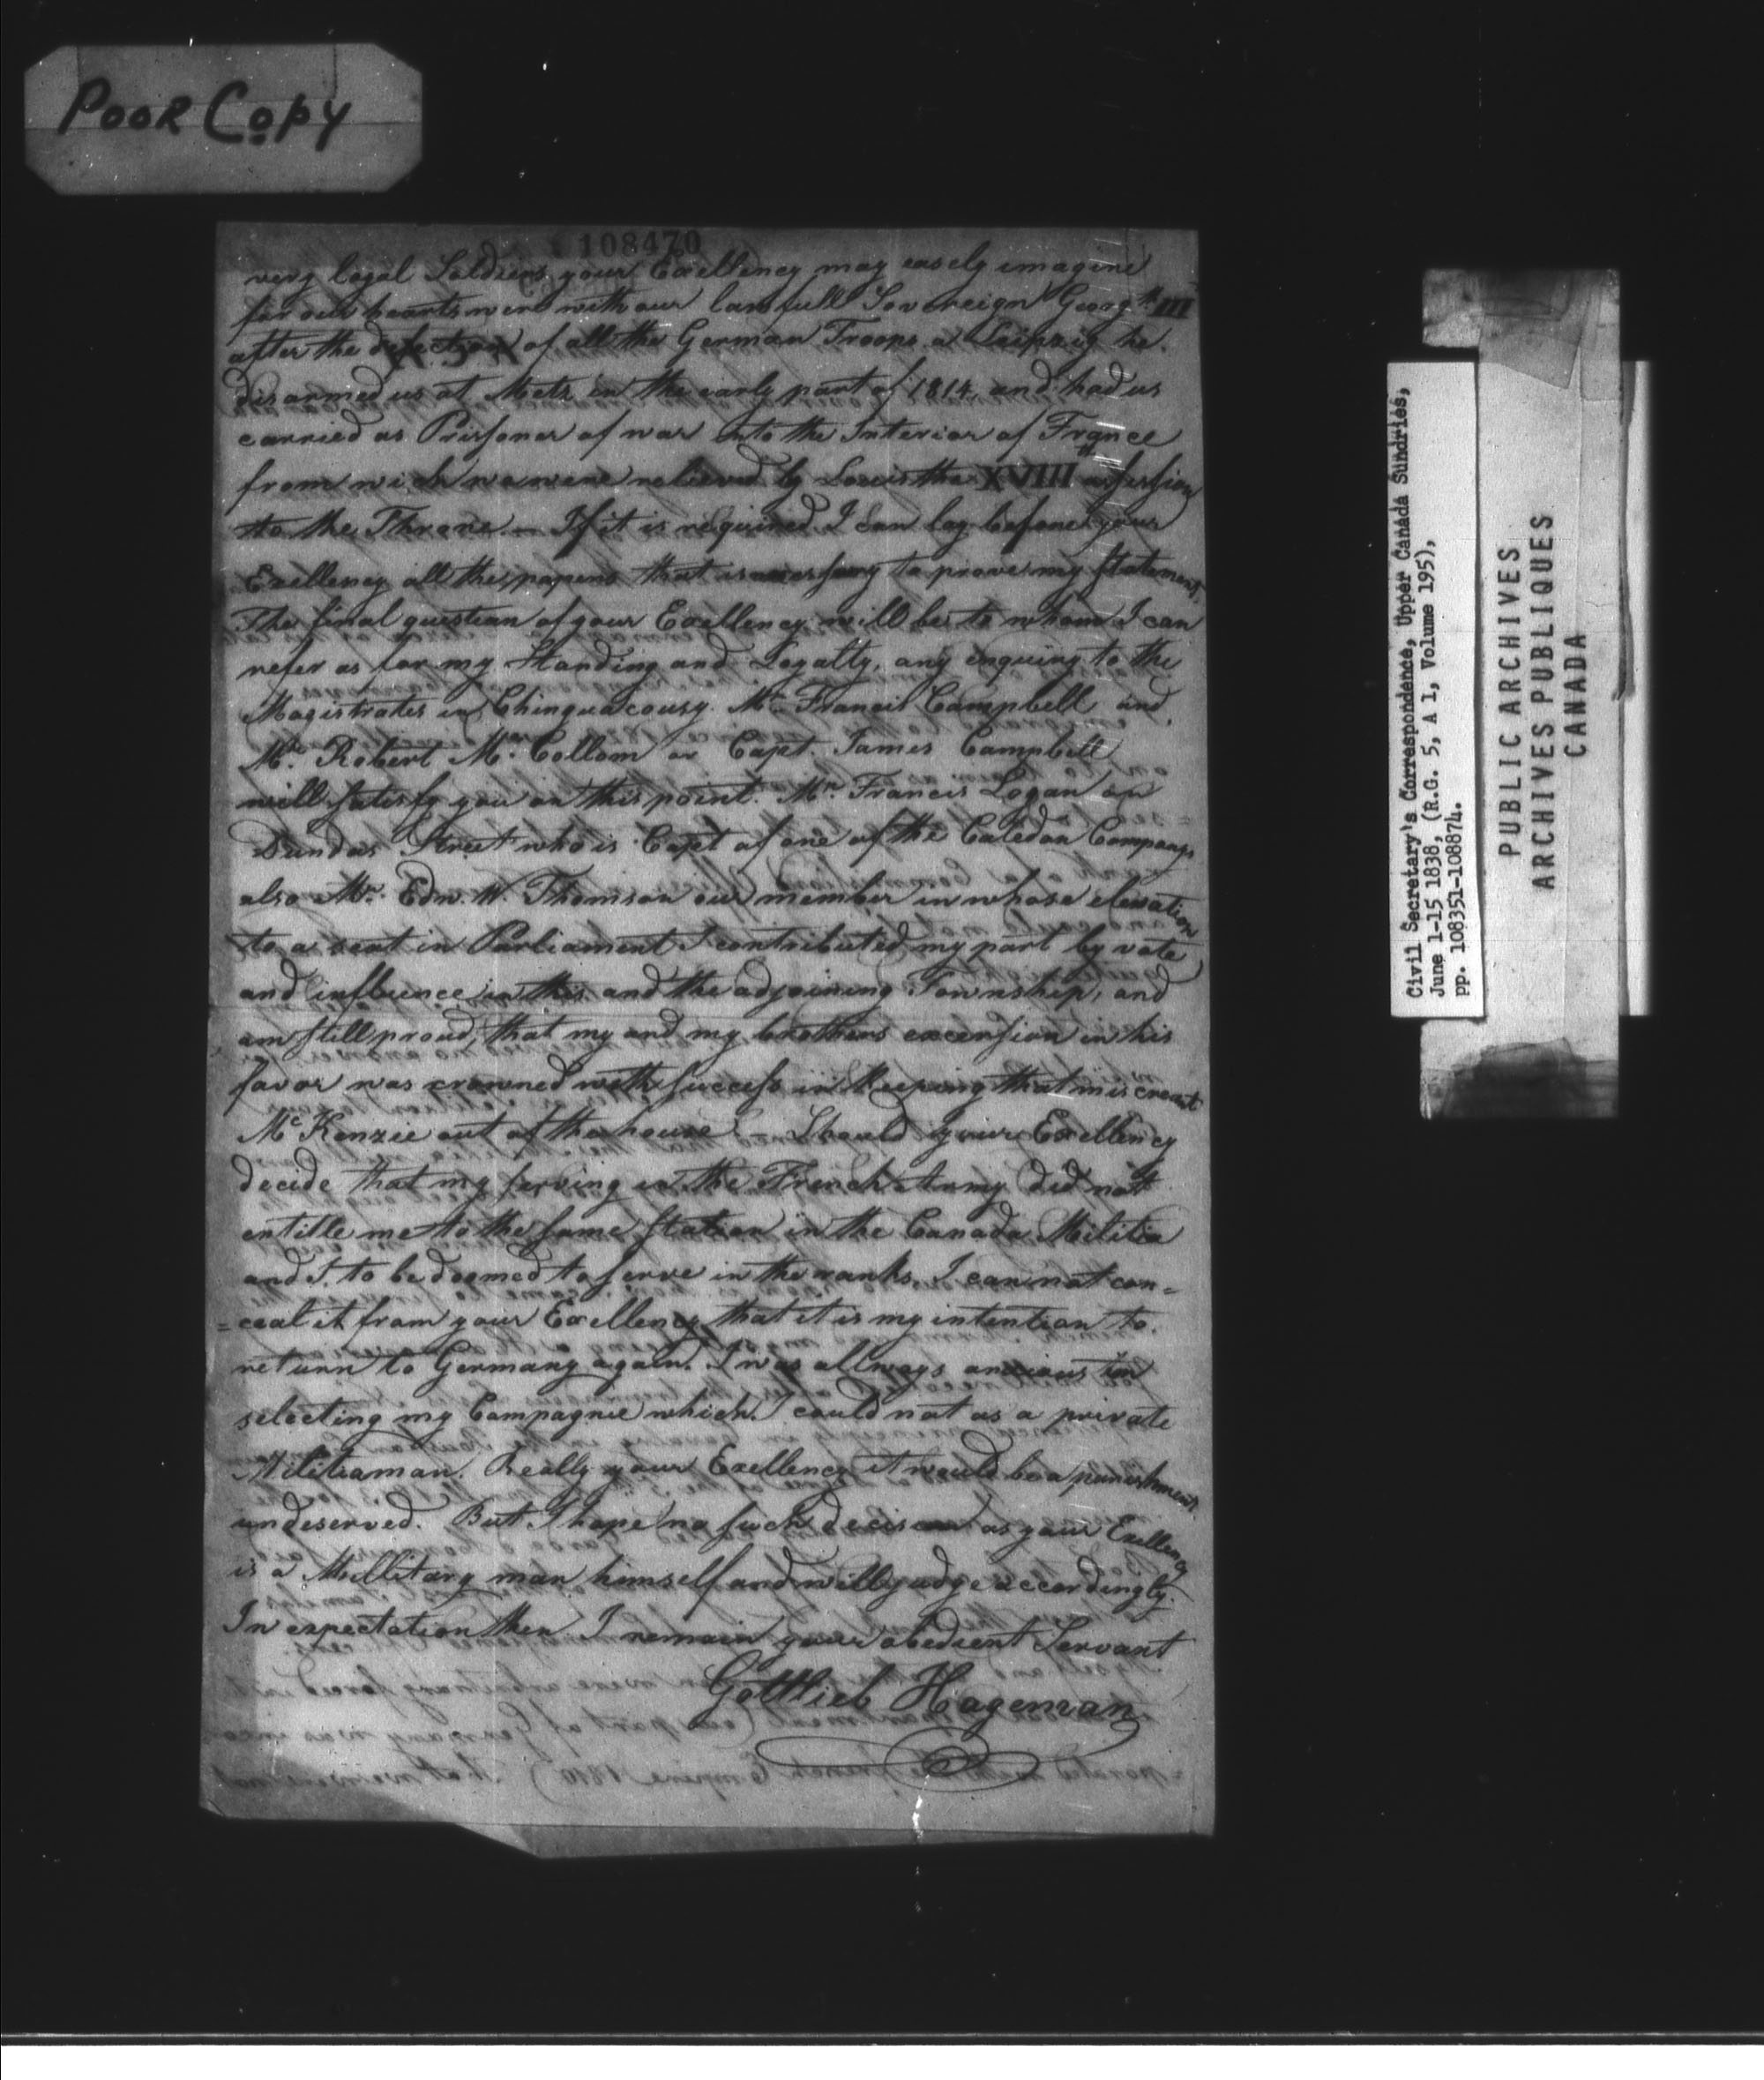 POOR COPY
108470
very legal Soldiers your Exellency may easely imagine
for our hearts were with our lawfull Sovereign Georg th III
after the defection of all the German Troops a Leipzig he
disarmed us at Metz in the early part of 1814, and had us
carried as Prisoner of war into the Interior of France
from wich we were relieved by Louis the XVIII th
to the Throne. — If it is required I can lay before your
Exellency all the papers that is necessary to prove my statement,
The final question of your Exellency will be to whom I can
refer as for my Standing and Loyalty, any enquiry to the
Magistrates in Chinguacousy Mr. Francis Campbell and
Mr. Robert Mc. Collom or Capt. James Campbell
will satisfy you on this point. Mr. Francis Logan on
Dundas Street who is Capt of one of the Caledon Companys
also Mr. Edw. W. Thomson our member in whose elevation
to a seat in Parliament I contributed my part by vote
and influence in this and the adjoining Township, and
am still proud, that my and my brothers excersion in his
favor was crowned with success in keeping that miscreant
McKenzie out of the house! — Should your Exellency
decide that my serving in the French Army did not
entitle me to the same station in the Canada Militia
and I. to be doomed to serve in the ranks. I can not con=
=ceal it from your Exellency that it is my intention to
return to Germany again. I was allways anxious in
selecting my Compagnie which I could not as a private
Militiaman. Really your Exellency it would be a punishment
undeserved. But I hope no such decision as your Exellency
is a Millitary man himself and will judge accordingly.
In expectation then I remain your obedient Servant
Gottlieb Hageman
Civil Secretary's Correspondence, Upper Canada Sundries,
June 1-15 1838, (R.G. 5, A 1, Volume 195),
pp. 108351-108874.
PUBLIC ARCHIVES
ARCHIVES PUBLIQUES
CANADA